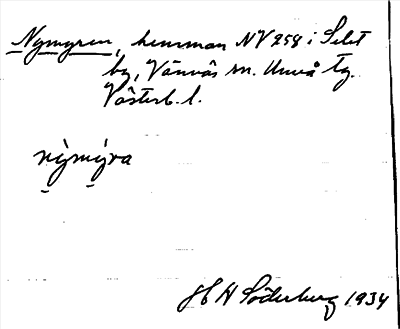 Nymyren, hemman NV 258 i Selet
by, Vännäs sn. Umeå tg.
Västerb. l.
nỳmýra
H Söderberg 1934